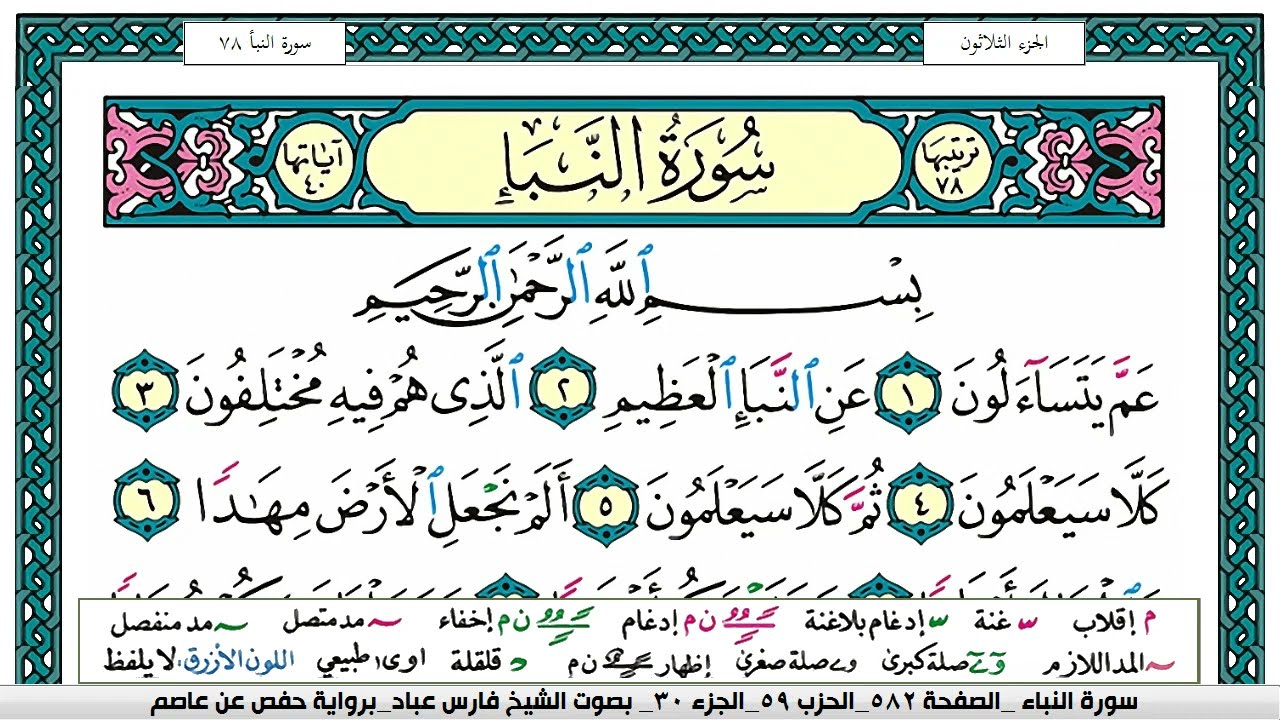 الجزء الثلاثون
سورة النبأ ٧٨
ترتيبها ٧٨
سُورَةُ النَّبَإِ
آيَاتها ٤٠
بِسْمِ ٱللَّهِ ٱلرَّحْمَٰنِ ٱلرَّحِيمِ
عَمَّ يَتَسَآءَلُونَ ١ عَنِ ٱلنَّبَإِ ٱلْعَظِيمِ ٢ ٱلَّذِى هُمْ فِيهِ مُخْتَلِفُونَ ٣
كَلَّا سَيَعْلَمُونَ ٤ ثُمَّ كَلَّا سَيَعْلَمُونَ ٥ أَلَمْ نَجْعَلِ ٱلْأَرْضَ مِهَٰدًا ٦
م إقلاب غنة إدغام بلاغنة ن م إدغام ن م إخفاء مد متصل مد منفصل
المد اللازم صلة كبرى صلة صغرى إظهار ن م قلقلة اوى طبيعي اللون الأزرق: لا يلفظ
سورة النباء _الصفحة ٥٨٢_الحزب ٥٩_الجزء ٣٠_ بصوت الشيخ فارس عباد_برواية حفص عن عاصم